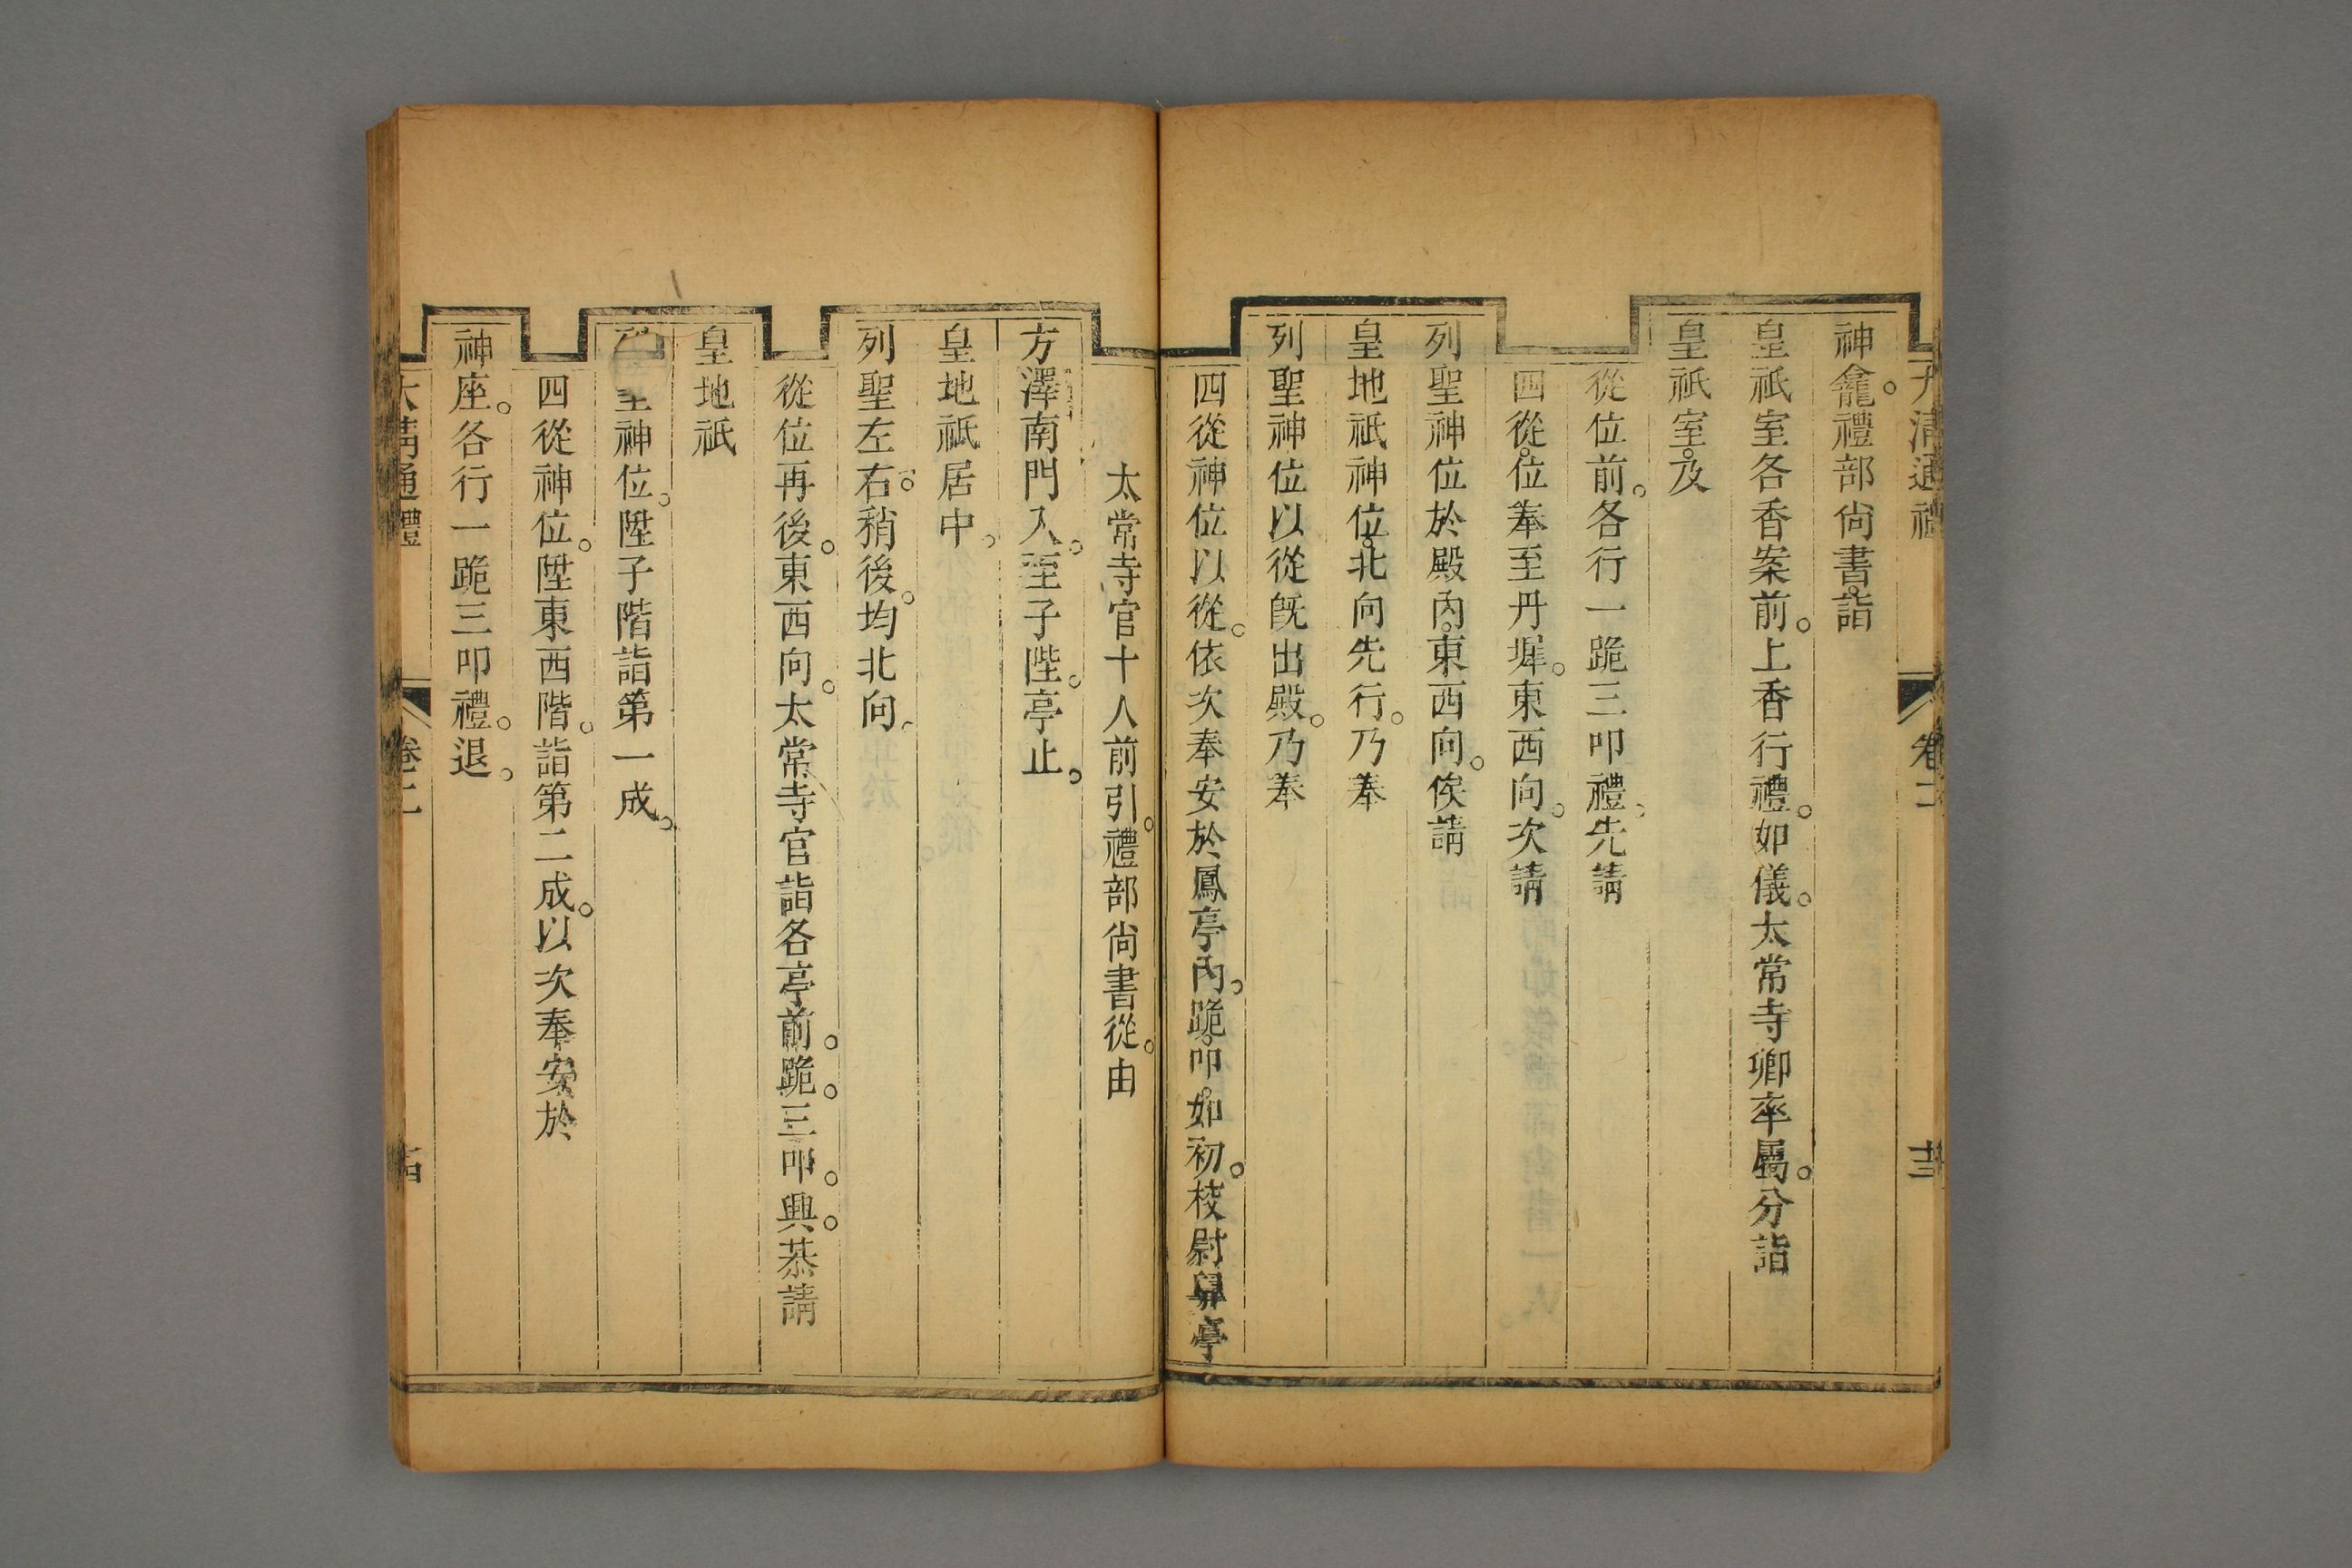 大清通禮 卷二 十三
神龕。禮部尙書。詣
皇祇室各香案前。上香行禮。如儀。太常寺卿率屬。分詣
皇祇室。及
從位前。各行一跪三叩禮。先請
四從。位奉至丹墀。東西向。次請
列聖神位於殿內。東西向。俟請
皇地祇神位。北向先行。乃奉
列聖神位以從旣出殿。乃奉
四從神位以從。依次奉安於鳳亭內。跪。叩。如初。校尉舁亭
太常寺官十人前引。禮部尙書從。由
方澤南門入。至子陛。亭止。
皇地祇居中。
列聖左右。稍後。均北向。
從位再後。東西向。太常寺官詣各亭前。跪。三叩。興。恭請
皇地祇
聖神位。陞子階詣第一成。
四從神位。陞東西階。詣第二成。以次奉安於
神座。各行一跪三叩禮。退。
大清通禮 卷二